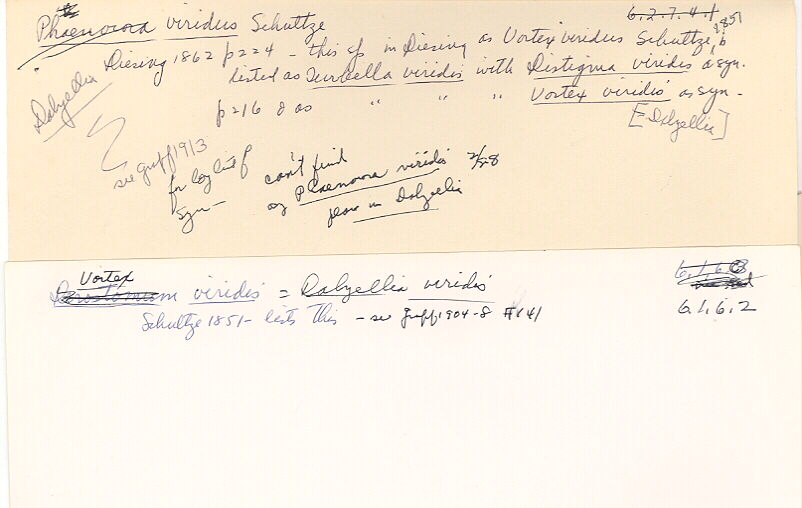 Phaenocora viridis Schultze 6.2.7.4.1
Diesing 1862 p224 - this sp in Diesing as Vortex viridus Schultze, 1851
listed as Turbella viridis with Distigma viridis as syn.
p216 & as " " " Vortex viridis as syn -
[= Dalyellia]
Dalyellia
see Graff 1913
for long list of
syn -
can't find
any Phaenocora viridis 2/58
now in Dalyellia
Vortex viridis = Dalyellia viridis 6.1.6.2
Schultze 1851 - lists this - see Graff 1904-8 #141